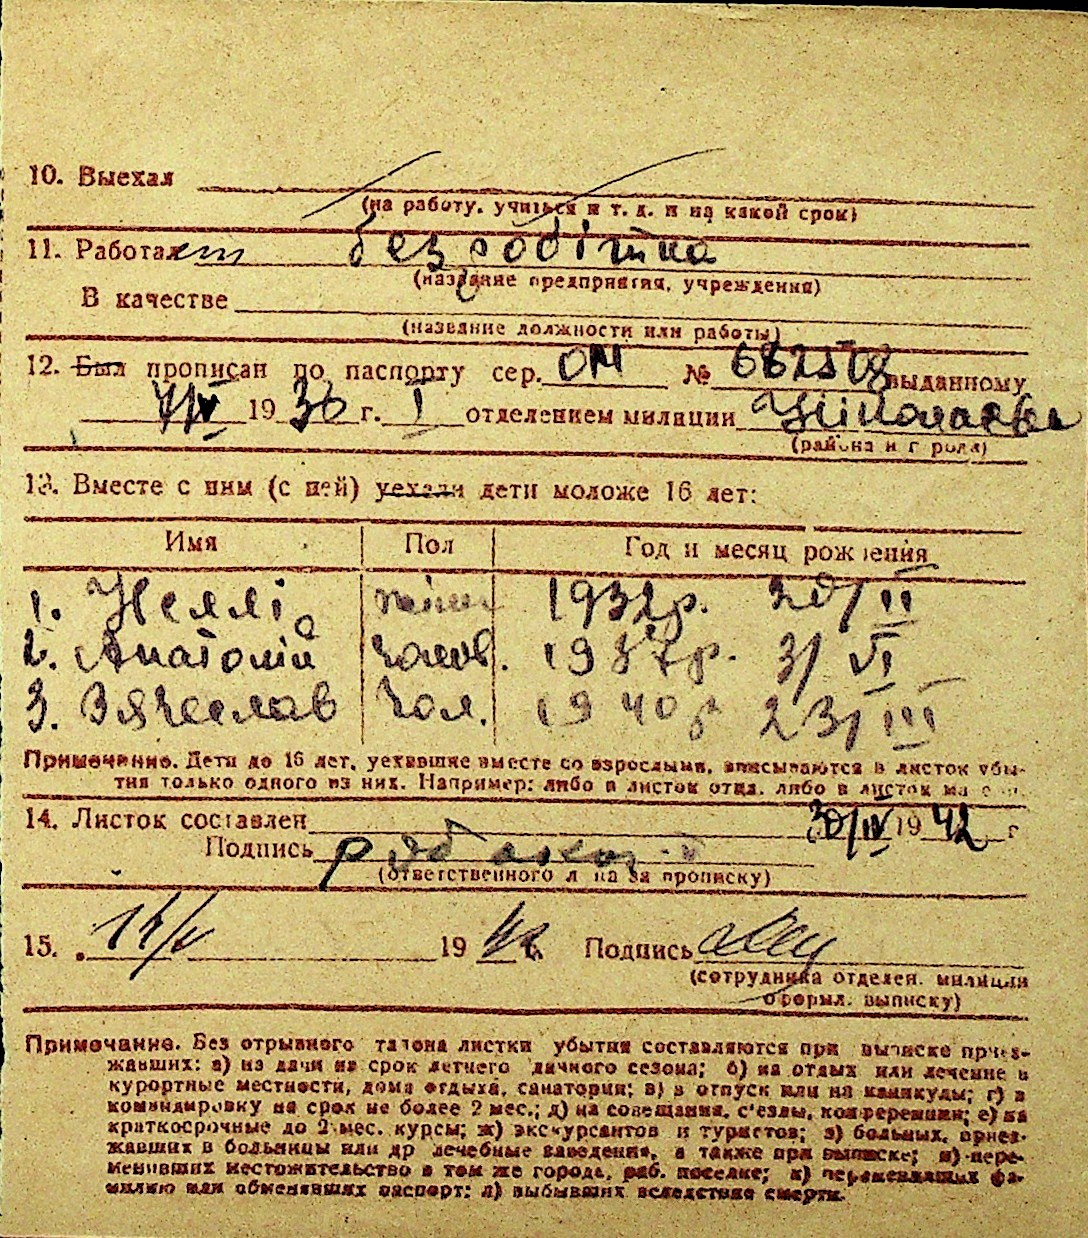 10. Выехал
(на работу, учиться и т. д. и на какой срок)
11. Работал безробітна
(название предприятия, учреждения)
В качестве
(название должности или работы)
12. Был прописан по паспорту сер. ОМ № 682508 выданному
7/IV 1936 г. I отделением милиции
(района и города)
13. Вместе с ним (с ней) уехали дети моложе 16 лет:
Имя Пол Год и месяц рождения
1. Неллі 1932р. 20/II
2. Анатолій чолов. 1937р. 3/VI
3. Вячеслав чол. 1940р 23/III
Примечание. Дети до 16 лет, уехавшие вместе со взрослыми, вписываются в листок убы-
тия только одного из них. Например: либо в листок отца, либо в листок матери.
14. Листок составлен 30/IV 1942 г
Подпись
(ответственного лица за прописку)
15. 1942 Подпись
(сотрудника отделен. милиции
оформл. выписку)
Примечание. Без отрывного талона листки убытия составляются при выписке приез-
жавших: а) на дачи на срок летнего дачного сезона; б) на отдых или лечение в
курортные местности, дома отдыха, санатории; в) в отпуск или на каникулы; г) в
командировку на срок не более 2 мес.; д) на совещания, с'езды, конференции; е) на
краткосрочные до 2 мес. курсы; ж) экскурсантов и туристов; з) больных, приез-
жавших в больницы или др лечебные заведения, а также при выписке; и) пере-
менивших местожительство в том же городе, раб. поселке; к) переменивших фа-
милию или обменявших паспорт; л) выбывших вследствие смерти.